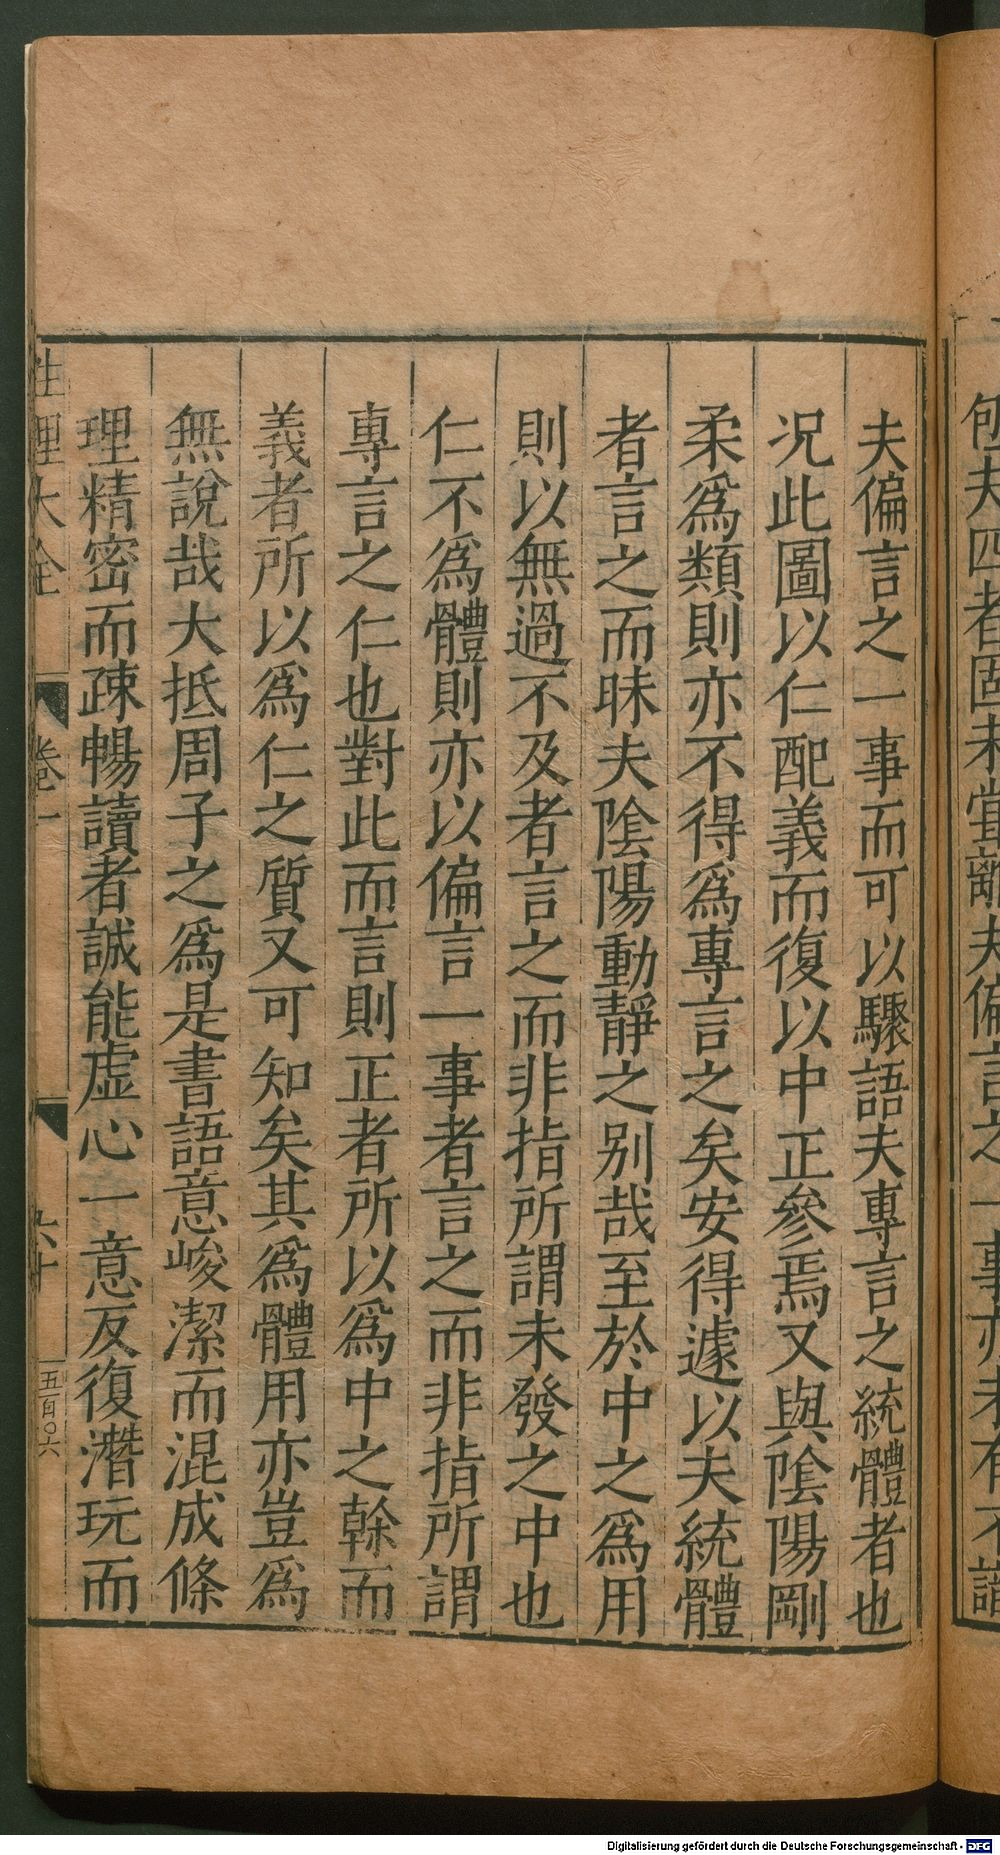 夫偏言之一事而可以驟語夫專言之統體者也
况此圖以仁配義而復以中正參焉又與陰陽剛
柔爲類則亦不得爲專言之矣安得遽以夫統體
者言之而昧夫陰陽動靜之别哉至於中之爲用
則以無過不及者言之而非指所謂未發之中也
仁不爲體則亦以偏言一事者言之而非指所謂
專言之仁也對此而言則正者所以爲中之榦而
義者所以爲仁之質又可知矣其爲體用亦豈爲
無說哉大抵周子之爲是書語意峻潔而混成條
理精密而疎暢讀者誠能虚心一意反復潛玩而
性理大全
卷一
六十
五百〇六
夫四者固未嘗離夫偏言之一事亦未有不
Digitalisierung gefördert durch die Deutsche Forschungsgemeinschaft - DFG